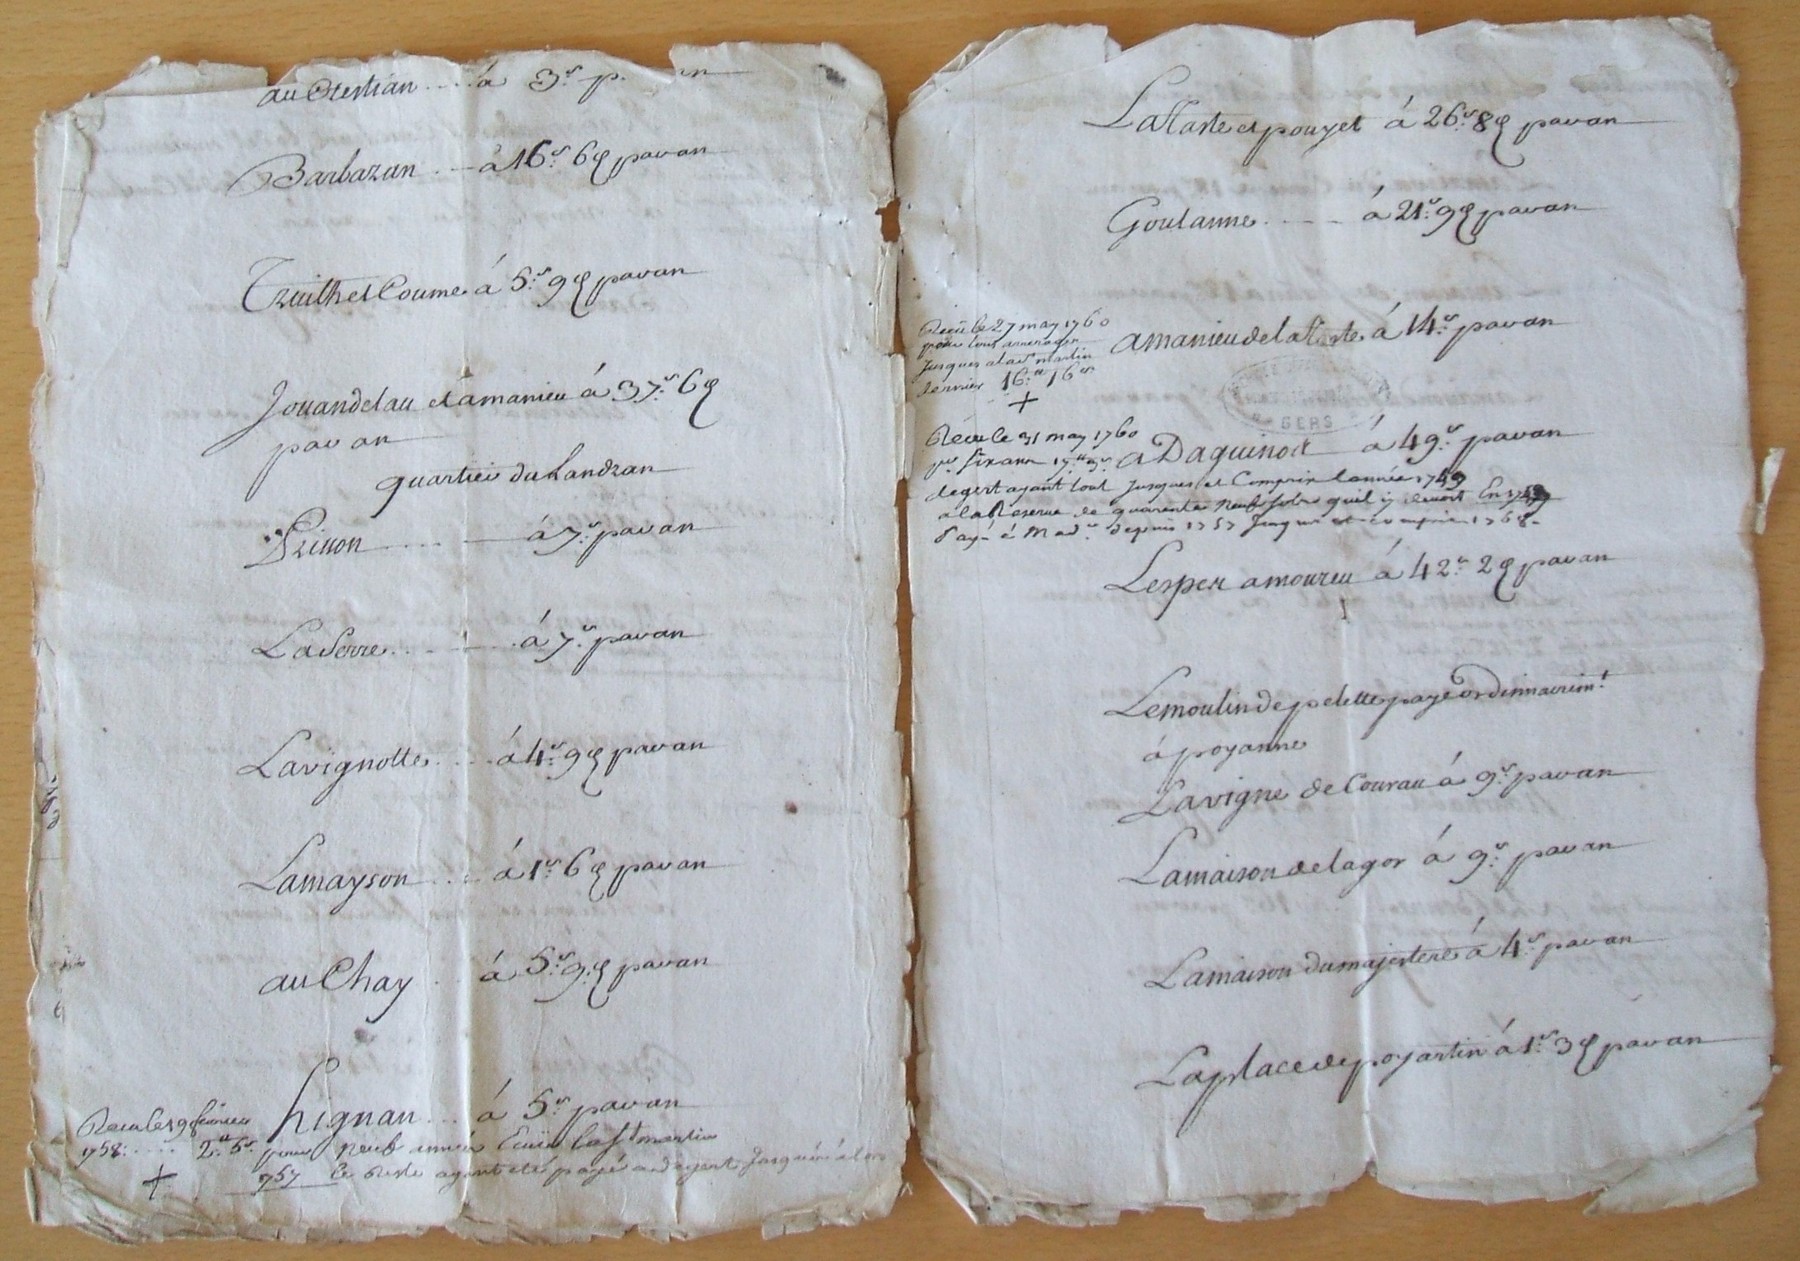 au Crestian .... à 3.s p. an
Barbazan ... à 16.s 6₰ par an
Truilh et Coume à 5.s 9₰ par an
Jouandelau et amanieu à 37.s 6₰
par an
quartier du handzan
Prisson .... à 7.s par an
La Serre .... à 7.s par an
Lavignotte .... à 4.s 9₰ par an
Lamayson .... à 1.s 6₰ par an
au Chay .. à 5.s 9₰ par an
hignan ... à 5.s par an
Receu le 19 feurier
1758: .... 2.tt 5.s pour neuf année la St martin
757 le reste ayant eté payé a degert jusquà alors
Lattaste et pouyet à 26.s 8₰ par an
Goulanne .... à 21.s 9₰ par an
Receü le 27 may 1760
pour tout arrerages
jusques a la st martin
dernier 16.tt 16.s
amanieu de lattaste à 14.s par an
GERS
Receu le 31 may 1760
pr six ans 19.tt 9.s
a Daguinott à 49.s par an
degert ayant tout jusques et Comprix lannée 1749
a la Reserue de quarante neuf sols quil y devoit En 1749
Payé à Mad.e depuis 1757 jusques et compris 1768.
Lesper amoureu à 42.s 2₰ par an
Le moulin de pelette paye ordinnairem.t
à poyanne
La vigne de Courau à 9.s par an
La maison de lagor à 9.s par an
La maison du majestere à 4.s par an
La place de poyartin à 1.s 3₰ par an